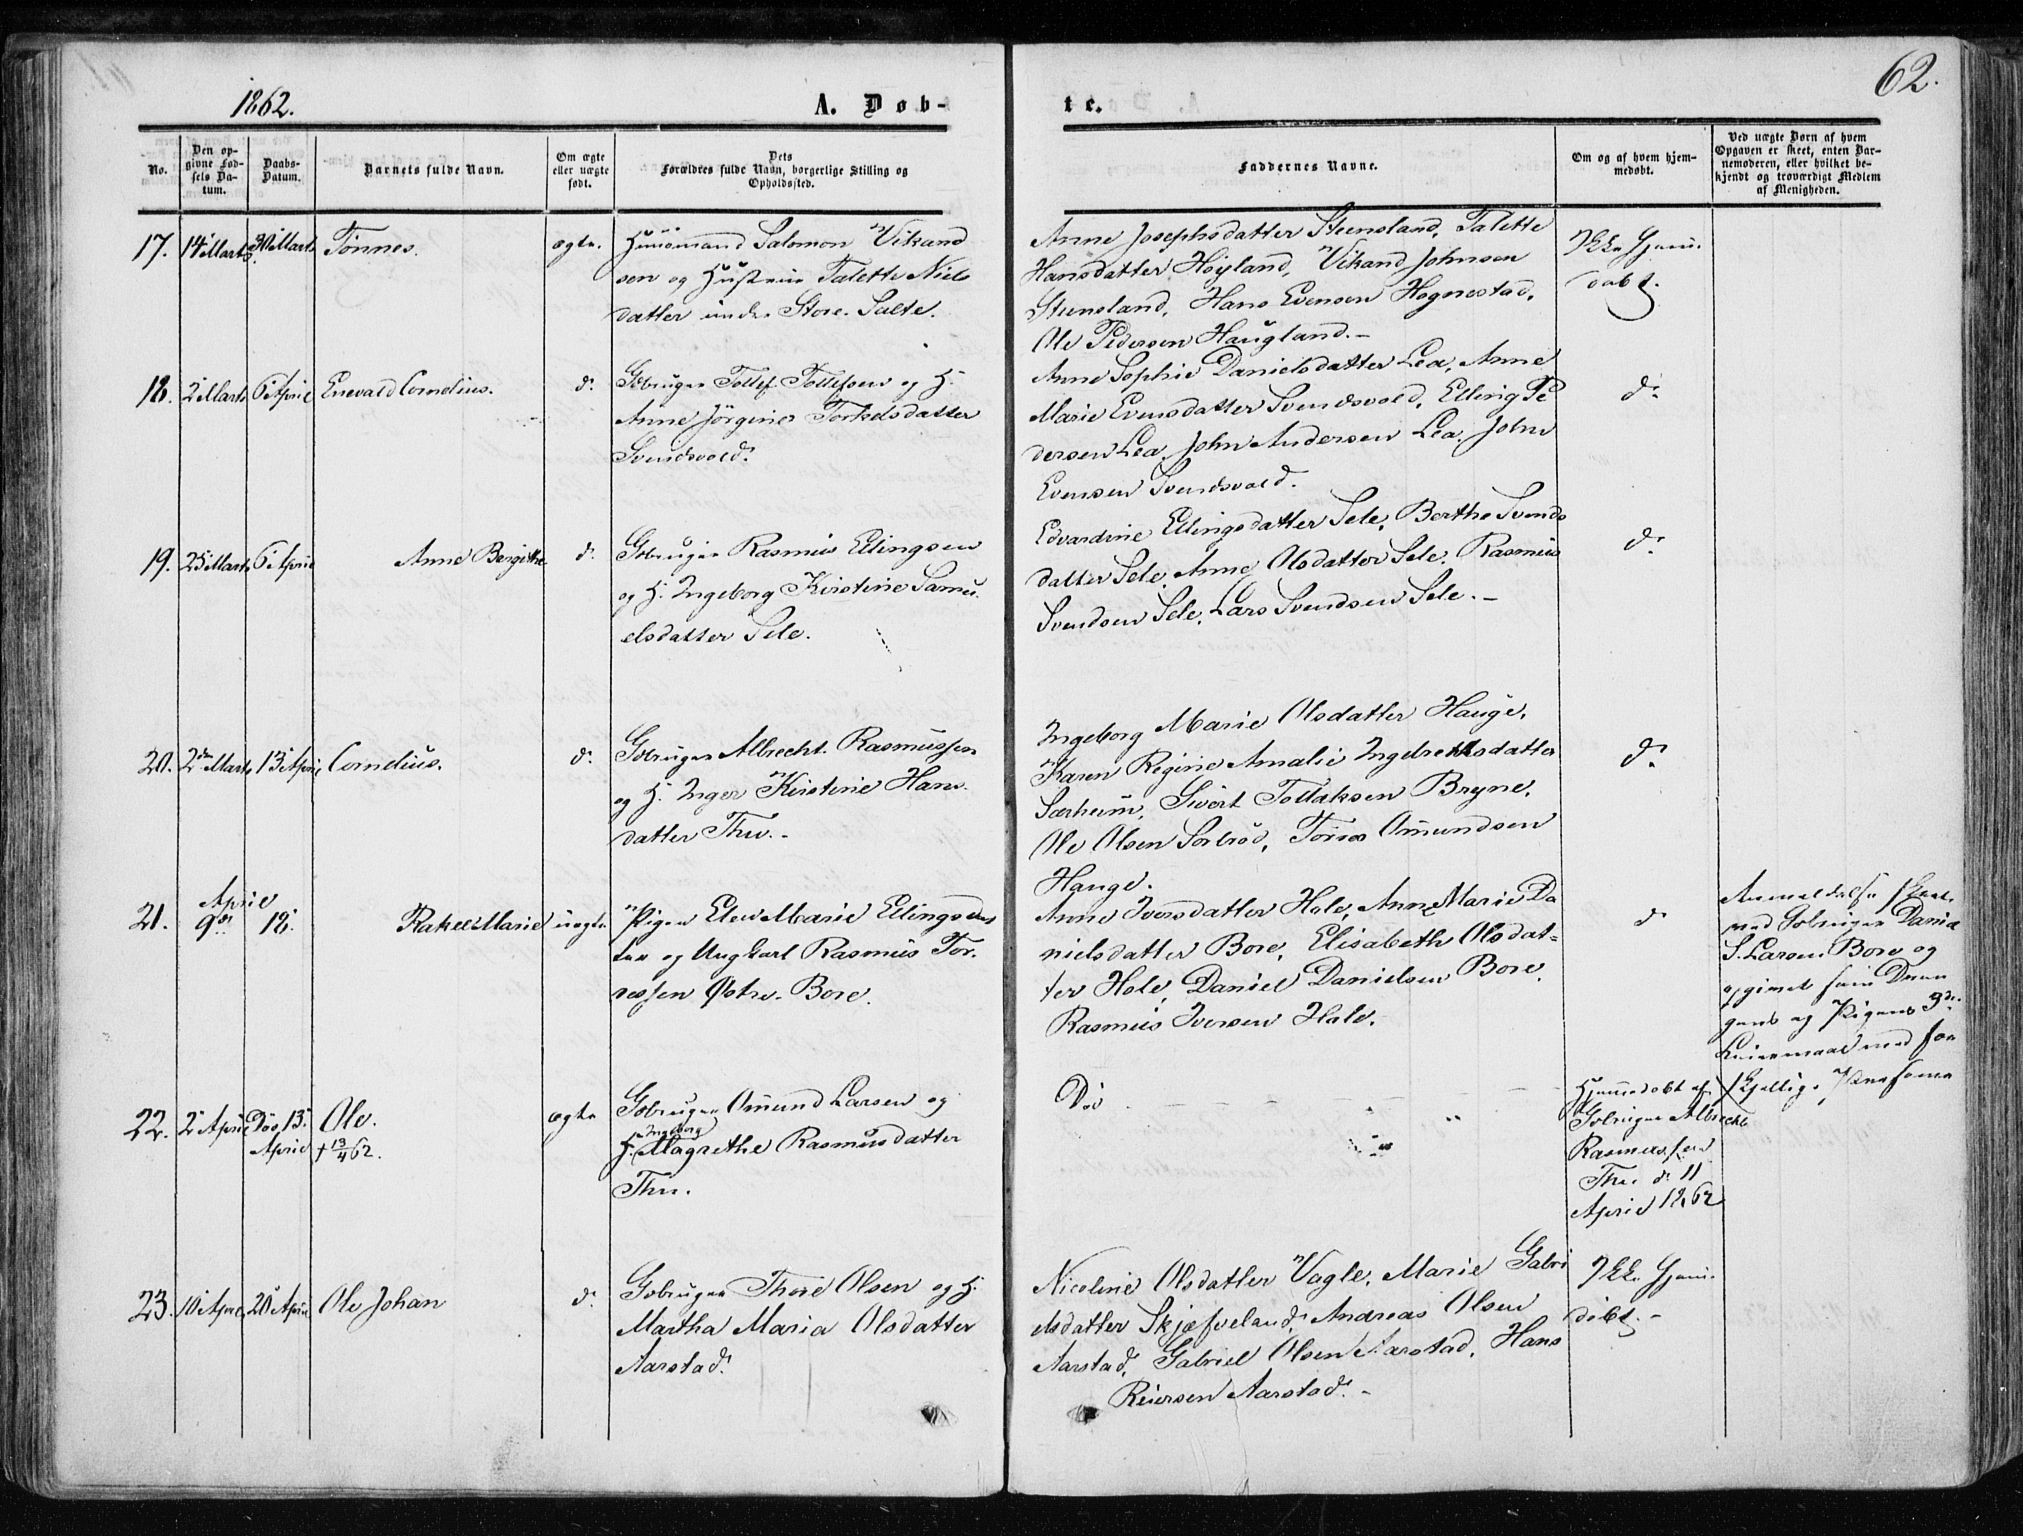 1862.
A. Døb-
te.
62.
No.
Den op-
givne Fød-
sels Da-
tum.
Daabs-
Datum.
Barnets fulde Navn.
Om ægte
eller uægte
født.
Dets
Forældres fulde Navn, borgerlige Stilling og
Opholdssted.
Faddernes Navne.
Om og af hvem hjem-
medøbt.
Ved uægte Børn af hvem
Opgaven er skeet, enten Bar-
nemoderen, eller hvilket be-
kjendt og troværdigt Medlem
af Menigheden.
17. 14 Marts 30 Marts Tønnes. ægte.
Huusmand Salomon Vikand
sen og Hustrue Talette Niels
datter under Store Salte.
Anne Josephsdatter Steensland, Talette
Hansdatter Høyland, Vikand Johnsen
Steensland, Hans Evensen Hognestad,
Ole Pedersen Haugland.-
Ikke Hjem.
døbt.
18. 2 Marts 6 April Enevald Cornelius. do
Gbruger Tollef Tollefsen og H.
Anne Jørgine Torkelsdatter
Svendsvold.
Anne Sophie Danielsdatter Lea, Anne
Marie Evensdatter Svendsvold, Elling Pe
dersen Lea, John Andersen Lea, John
Evensen Svendsvold.
do
19. 25 Marts 6 April Anne Bergitte do
Gbruger Rasmus Ellingsen
og H. Ingeborg Kirstine Samu
elsdatter Sele.
Edvardine Ellingsdatter Sele, Berthe Svends
datter Sele, Anne Olsdatter Sele, Rasmus
Svendsen Sele, Lars Svendsen Sele.-
do
20. 2den Marts 13 April Cornelius. do
Gbruger Albrecht Rasmussen
og H. Inger Kirstine Hans
datter Thu.-
Ingeborg Marie Olsdatter Hauge,
Karen Regine Amalie Ingebretsdatter
Særheim, Sivert Tollaksen Bryne,
Ole Olsen Sorbrød, Torris Omundsen
Hauge.
do
21. April
9de 18. Rakel Marie uægte
Pigen Elen Marie Ellingsdat
ter og Ungkarl Rasmus Tor.
resen Østre-Bore.
Anne Iversdatter Hole, Anne Marie Da
nielsdatter Bore, Elisabeth Olsdat=
ter Hole, Daniel Danielsen Bore,
Rasmus Iversen Hole.
do
Anmeldelse skeet
ved Gbruger Daniel
S. Larsen Bore og
opgivet som Dren
gens og Pigens 3die
Leiermaal med for
skjellige Personer
22. 2 April Døs 13
April Ole.
† 13/4 62. ægte
Gbruger Omund Larsen og
H. Ingeborg Magrethe Rasmusdatter
Thu.
Død
Hjemmedøbt af
Gbruger Albrecht
Rasmussen
Thu d. 11
April 1862
23. 10 April 20 April Ole Johan do
Gbruger Thore Olsen og H.
Martha Maria Olsdatter
Aarstad.
Nicoline Olsdatter Vagle, Marie Gabri
elsdatter Skjæfveland, Andreas Olsen
Aarstad, Gabriel Olsen Aarstad, Hans
Reiersen Aarstad.-
Ikke Hjem.
døbt.-